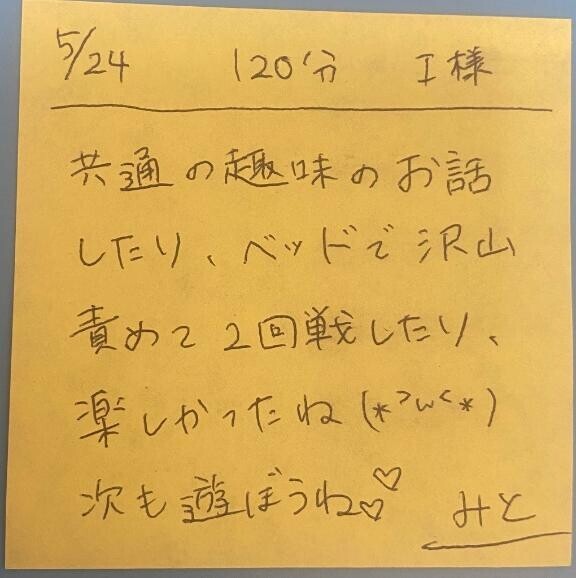 5/24 120分 I様
共通の趣味のお話
したり、ベッドで沢山
責めて2回戦したり、
楽しかったね(*>ω<*)
次も遊ぼうね♡♡ みと